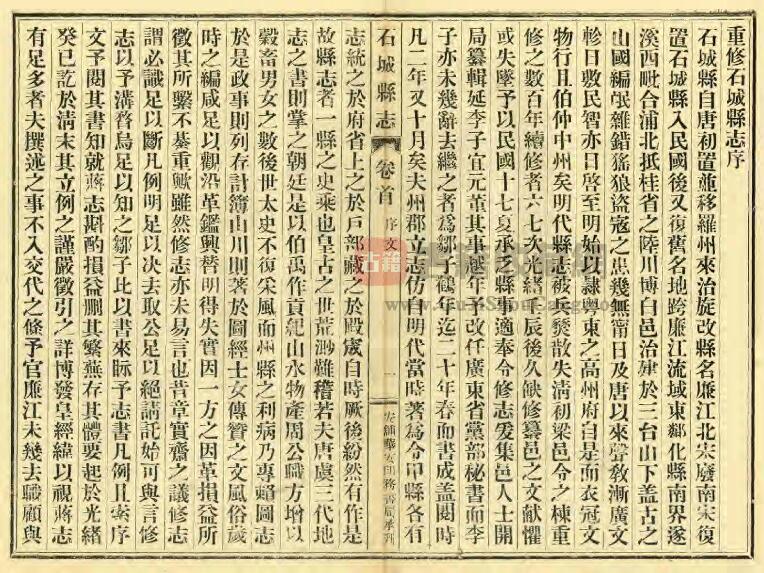 重修石城縣志序
石城縣自唐初置並移羅州來治旋改縣名廉江北宋廢南宋復
置石城縣入民國後又復舊名地跨廉江流域東鄰化縣南界遂
溪西毗合浦北抵桂省之陸川博白邑治建於三台山下蓋古之
山國編氓雜錯猺狼盜寇之患幾無甯日及唐以來聲敎漸廣文
軫日敷民智亦日啓至明始以隸粤東之高州府自是而衣冠文
物行且伯仲中州矣明代縣志被兵燹散失清初梁邑令之棟重
修之數百年續修者六七次光緒壬辰後久缺修纂邑之文獻懼
或失墜予以民國十七夏承乏縣事適奉令修志爰集邑人士開
局纂輯延李子宜元董其事越年予改任廣東省黨部秘書而李
子亦未幾辭去繼之者爲鄒子鶴年迄二十年春而書成蓋閱時
凡二年又十月矣夫州郡立志仿自明代當時著爲令甲縣各有
石城縣志
卷首
序文
一
志統之於府省上之於戶部藏之於殿宬自時厥後紛然有作是
故縣志者一縣之史乘也皇古之世荒渺難稽若夫唐虞三代地
志之書則掌之朝廷是以伯禹作貢紀山水物產周公職方增以
穀畜男女之數後世太史不復采風而州縣之利病乃專賴圖志
於是政事則列存計簿山川則著於圖經士女傳贊之文風俗歲
時之編咸足以觀沿革鑑興替明得失實因一方之因革損益所
徵其所繫不綦重歟雖然修志亦未易言也昔章實齋之議修志
謂必識足以斷凡例明足以决去取公足以絕請託始可與言修
志以予溝瞀烏足以知之鄒子比以書來眎予志書凡例且索序
文予閱其書知就蔣志斟酌損益刪其繁蕪存其體要起於光緒
癸巳訖於清末其立例之謹嚴徵引之詳博發皇經緯以視蔣志
有足多者夫撰述之事不入交代之條予官廉江未幾去職顧與
古籍